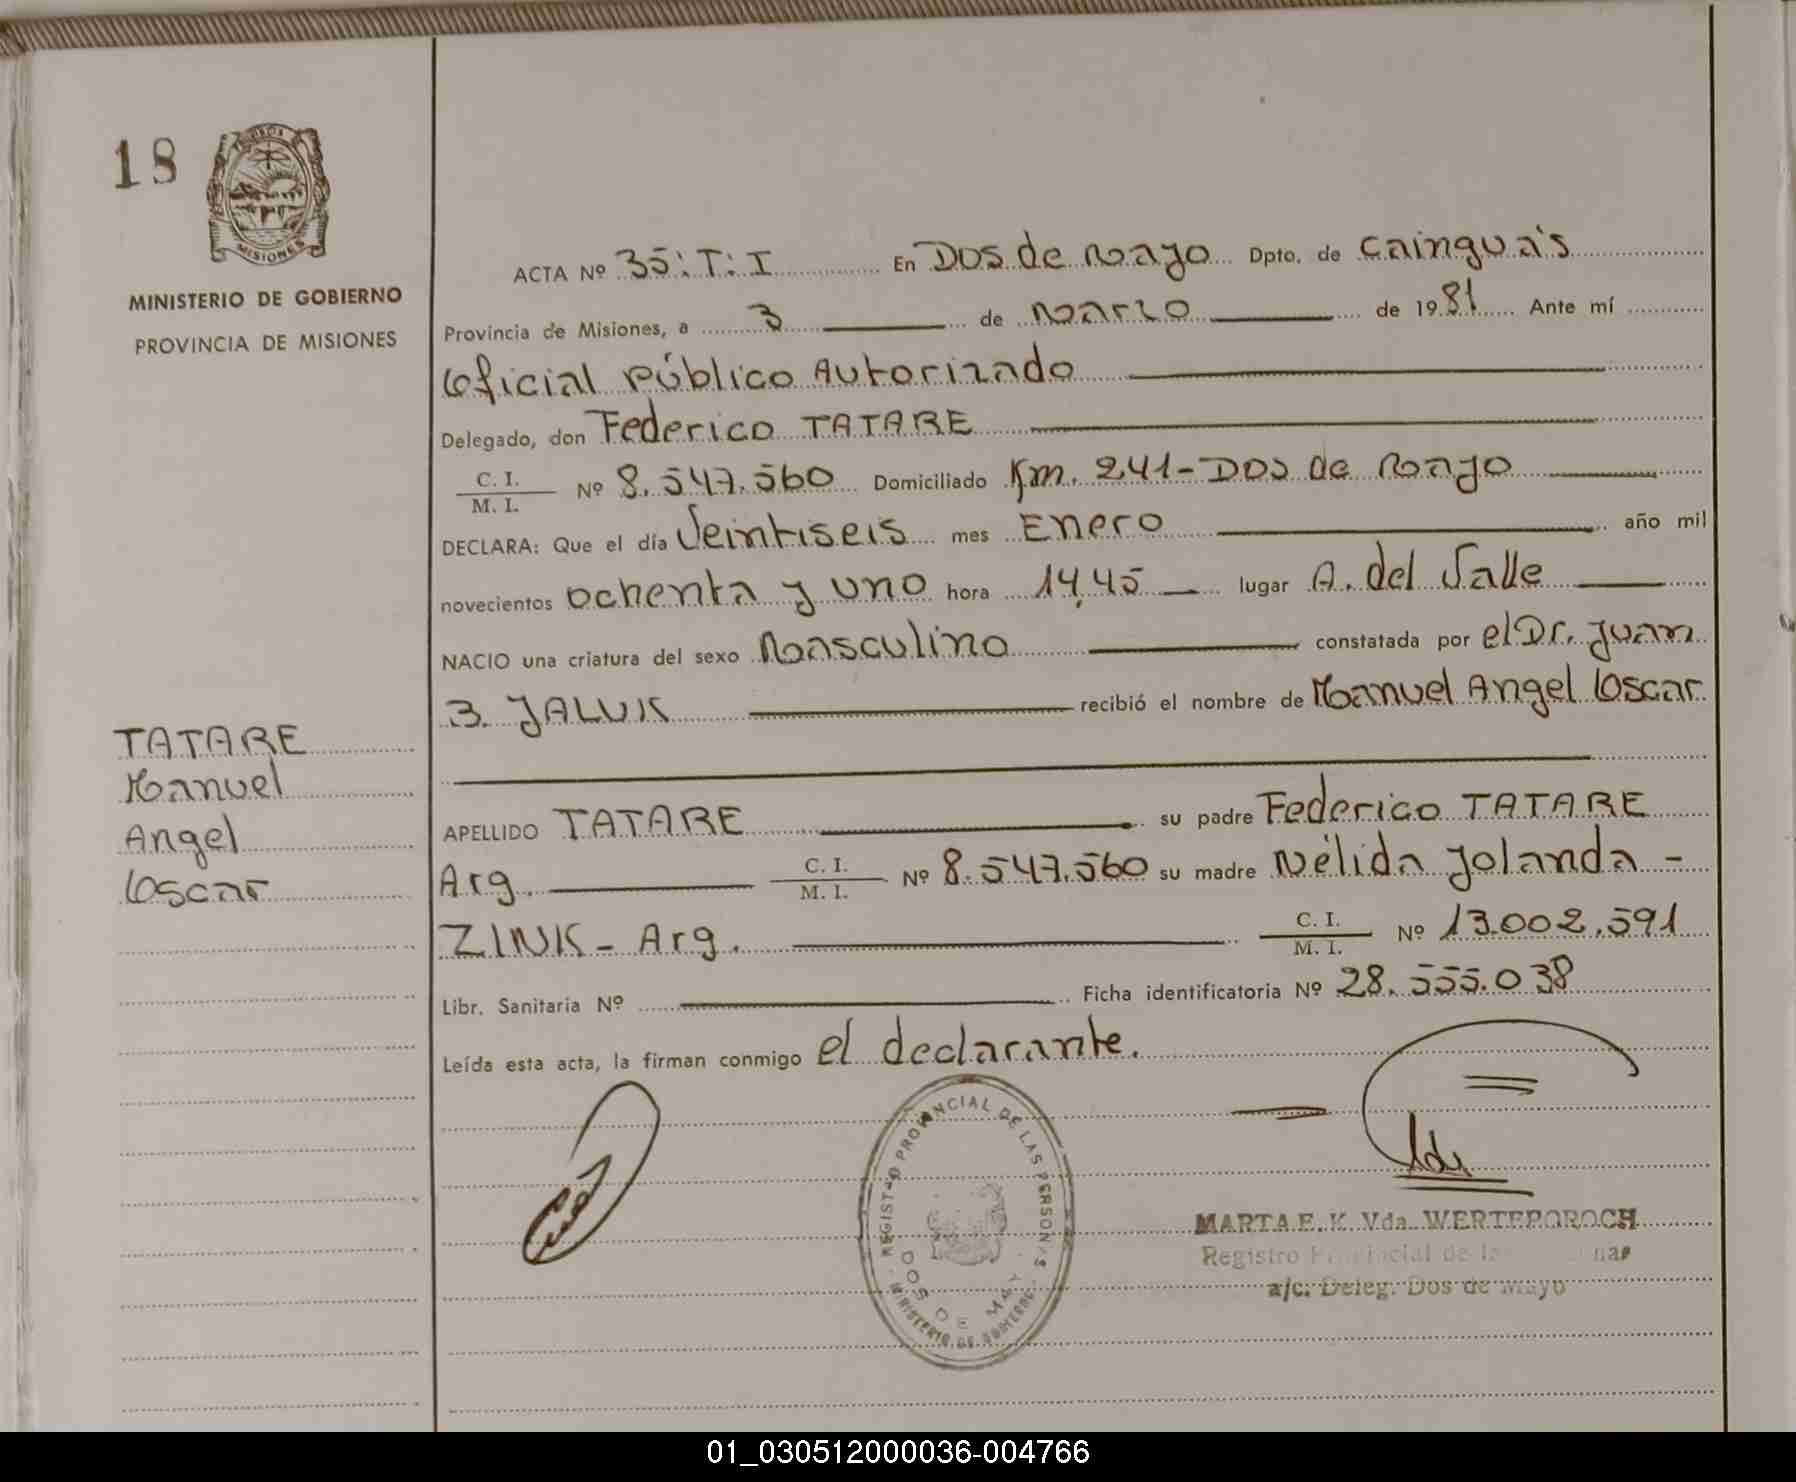 18
MISIONES
MINISTERIO DE GOBIERNO
PROVINCIA DE MISIONES
TATARE
Manuel
Angel
Oscar
ACTA Nº 35:T:I En Dos de Mayo Dpto. de Cainguá's
Provincia de Misiones, a 3 de Marzo de 1981 Ante mí
Oficial Público Autorizado
Delegado, don Federico TATARE
C. I.
M. I. Nº 8.547.560 Domiciliado Km. 241-Dos de Mayo
DECLARA: Que el día Veintiseis mes Enero año mil
novecientos ochenta y uno hora 14,45 lugar A. del Valle
NACIO una criatura del sexo Masculino constatada por el Dr. Juan
3. JALUK recibió el nombre de Manuel Angel Oscar
APELLIDO TATARE su padre Federico TATARE
Arg. C. I. M. I. Nº 8.547.560 su madre Nélida Yolanda -
ZINK - Arg. C. I. M. I. Nº 13.002.591
Libr. Sanitaria Nº Ficha identificatoria Nº 28.555.038
Leída esta acta, la firman conmigo el declarante.
REGISTRO PROVINCIAL DE LAS PERSONAS
MINISTERIO DE GOBIERNO
DOS DE MAY
MARTA E. K. Vda. WERTEPOROCH
Registro Provincial de la
a/c. Deleg. Dos de Mayo
01_030512000036-004766